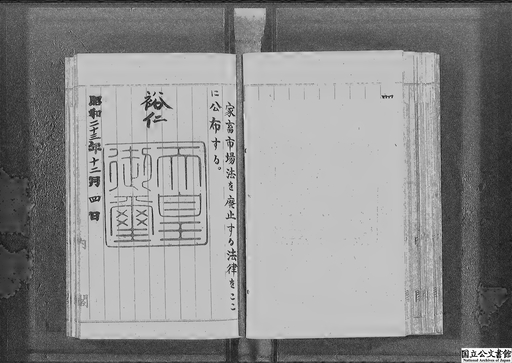 家畜市場法を廃止する法律をここ
に公布する。
裕仁
天皇
御璽
昭和二十三年十二月四日
内閣
国立公文書館
National Archives of Japan